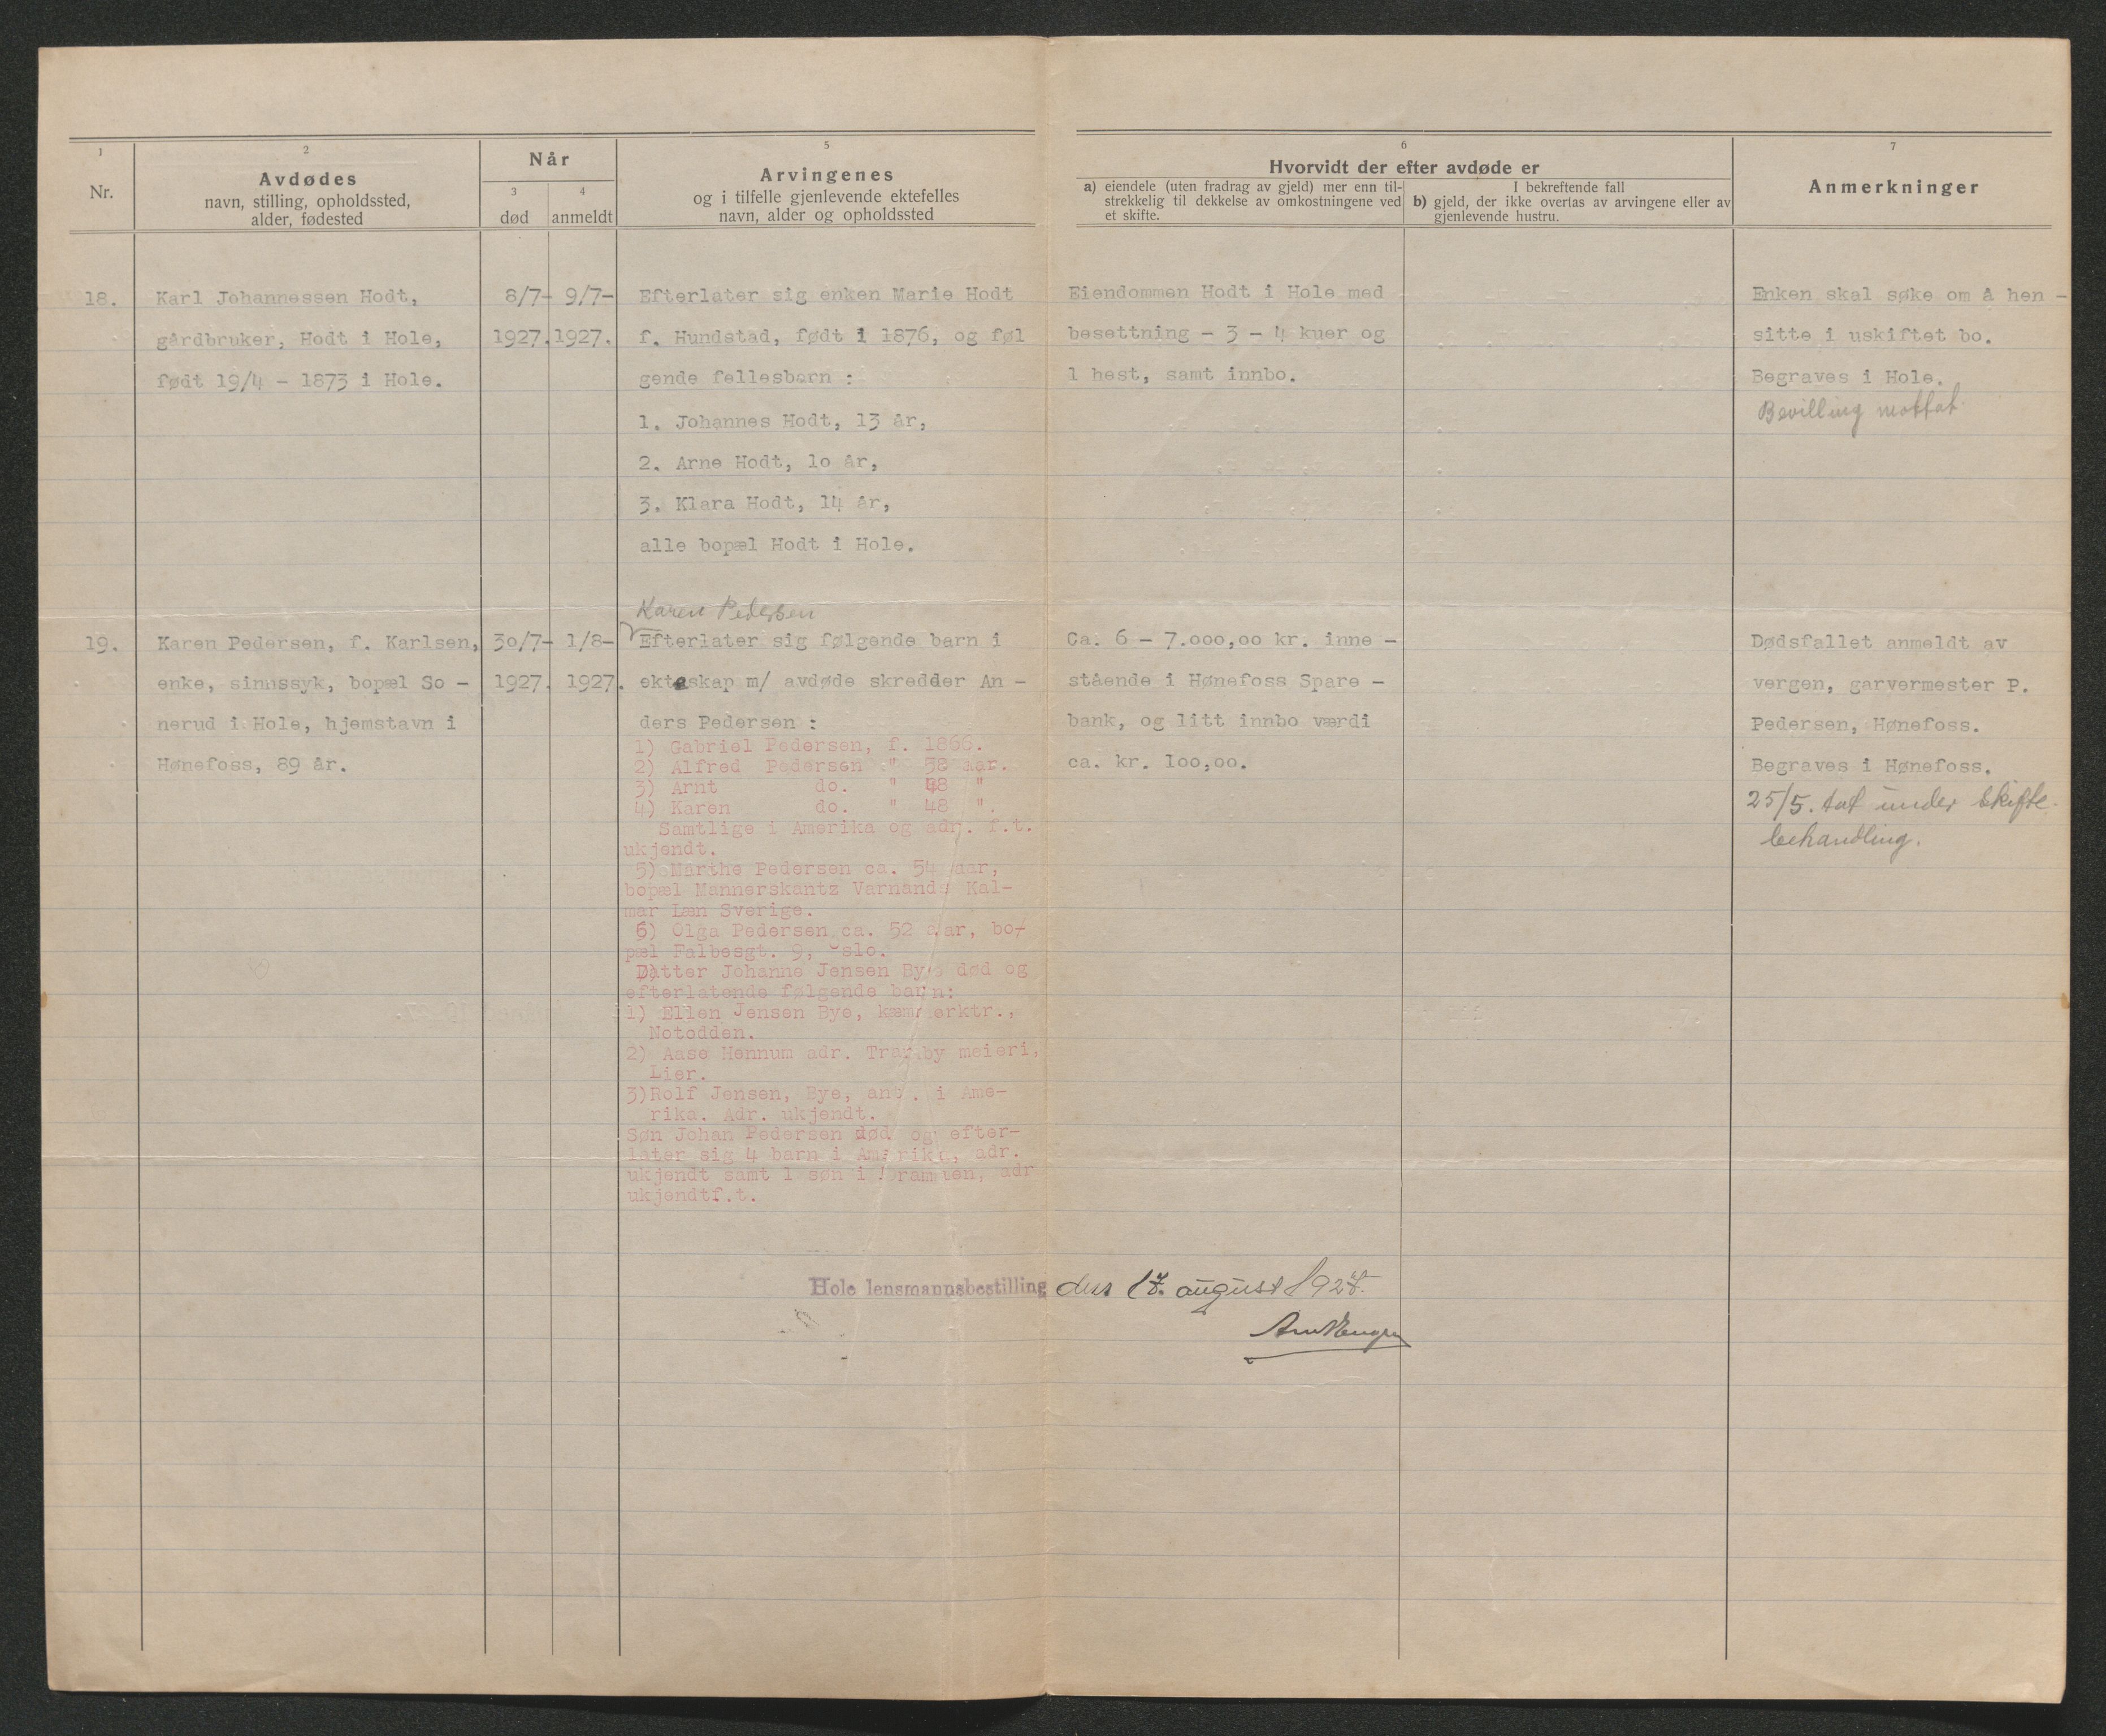 1
Nr.
2
Avdødes
navn, stilling, opholdssted,
alder, fødested
Når
3
død
4
anmeldt
5
Arvingenes
og i tilfelle gjenlevende ektefelles
navn, alder og opholdssted
6
Hvorvidt der efter avdøde er
a) eiendele (uten fradrag av gjeld) mer enn til-
strekkelig til dekkelse av omkostningene ved
et skifte.
I bekreftende fall
b) gjeld, der ikke overtas av arvingene eller av
gjenlevende hustru.
7
Anmerkninger
18.
Karl Johannessen Hodt,
gårdbruker, Hodt i Hole,
født 19/4 - 1873 i Hole.
8/7-
1927.
9/7-
1927.
Efterlater sig enken Marie Hodt
f. Hundstad, født i 1876, og føl
gende fellesbarn :
1. Johannes Hodt, 13 år,
2. Arne Hodt, 1o år,
3. Klara Hodt, 14 år,
alle bopæl Hodt i Hole.
Eiendommen Hodt i Hole med
besettning - 3 - 4 kuer og
1 hest, samt innbo.
Enken skal søke om å hen -
sitte i uskiftet bo.
Begraves i Hole.
Bevilling mottat
19.
Karen Pedersen, f. Karlsen,
enke, sinnssyk, bopæl So -
nerud i Hole, hjemstavn i
Hønefoss, 89 år.
3o/7-
1927.
1/8-
1927.
Karen Pedersen
Efterlater sig følgende barn i
ekteskap m/ avdøde skredder An -
ders Pedersen :
1) Gabriel Pedersen, f. 1866.
2) Alfred Pedersen " 58 aar.
3) Arnt do. " 48 "
4) Karen do. " 48 ".
Samtlige i Amerika og adr. f.t.
ukjendt.
5) Marthe Pedersen ca. 54 aar,
bopæl Mannerskantz Varnands Kal-
mar Læn Sverige.
6) Olga Pedersen ca. 52 aar, bo-
pæl Falbesgt. 9, Oslo.
Datter Johanne Jensen Bye død og
efterlatende følgende barn:
1) Ellen Jensen Bye, kæmnerktr.,
Notodden.
2) Aase Hennum adr. Tranby meieri,
Lier.
3)Rolf Jensen, Bye, ant. i Ame-
rika. Adr. ukjendt.
Søn Johan Pedersen død og efter-
later sig 4 barn i Amerika, adr.
ukjendt samt 1 søn i Drammen, adr
ukjendtf.t.
Ca. 6 - 7.000,00 kr. inne -
stående i Hønefoss Spare -
bank, og litt innbo værdi
ca. kr. 1oo,oo.
Dødsfallet anmeldt av
vergen, garvermester P.
Pedersen, Hønefoss.
Begraves i Hønefoss.
25/5. tat under skifte-
behandling.
Hole lensmannsbestilling den 17. august 1927.